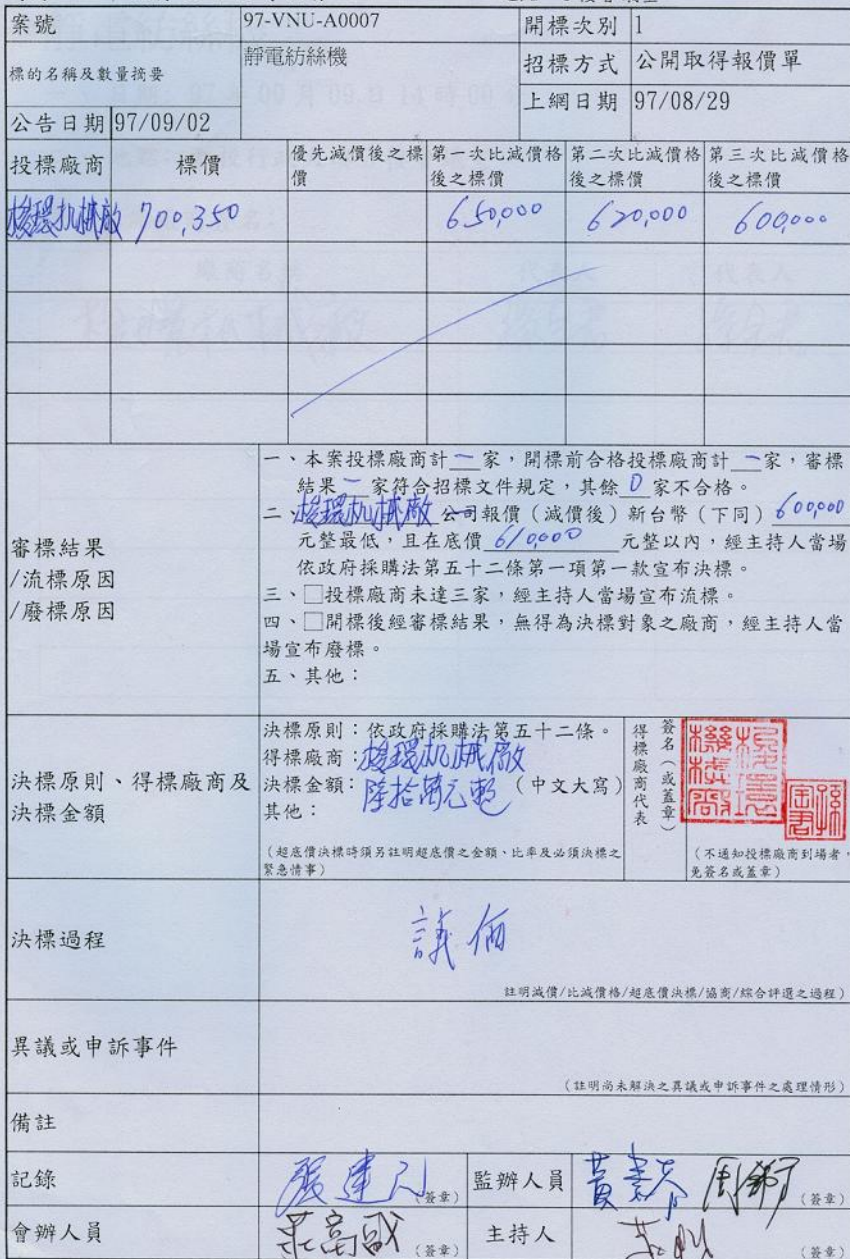 案號 97-VNU-A0007 開標次別 1
標的名稱及數量摘要 靜電紡絲機 招標方式 公開取得報價單
上網日期 97/08/29
公告日期 97/09/02
投標廠商 標價 優先減價後之標價 第一次比減價格後之標價 第二次比減價格後之標價 第三次比減價格後之標價
梭環机械廠 700,350 650,000 620,000 600,000
審標結果
/流標原因
/廢標原因
一、本案投標廠商計一家,開標前合格投標廠商計一家,審標
結果一家符合招標文件規定,其餘0家不合格。
二、梭環机械廠公司報價(減價後)新台幣(下同)600,000
元整最低,且在底價610,000元整以內,經主持人當場
依政府採購法第五十二條第一項第一款宣布決標。
三、□投標廠商未達三家,經主持人當場宣布流標。
四、□開標後經審標結果,無得為決標對象之廠商,經主持人當
場宣布廢標。
五、其他:
決標原則、得標廠商及
決標金額
決標原則:依政府採購法第五十二條。
得標廠商:梭環机械廠
決標金額:陸拾萬元整(中文大寫)
其他:
(超底價決標時須另註明超底價之金額、比率及必須決標之
緊急情事)
得標廠商代表
簽名(或蓋章)
梭環
機械廠
(不通知投標廠商到場者,
免簽名或蓋章)
決標過程
議価
註明減價/比減價格/超底價決標/協商/綜合評選之過程)
異議或申訴事件
(註明尚未解決之異議或申訴事件之處理情形)
備註
記錄 (簽章) 監辦人員 (簽章)
會辦人員 (簽章) 主持人 (簽章)